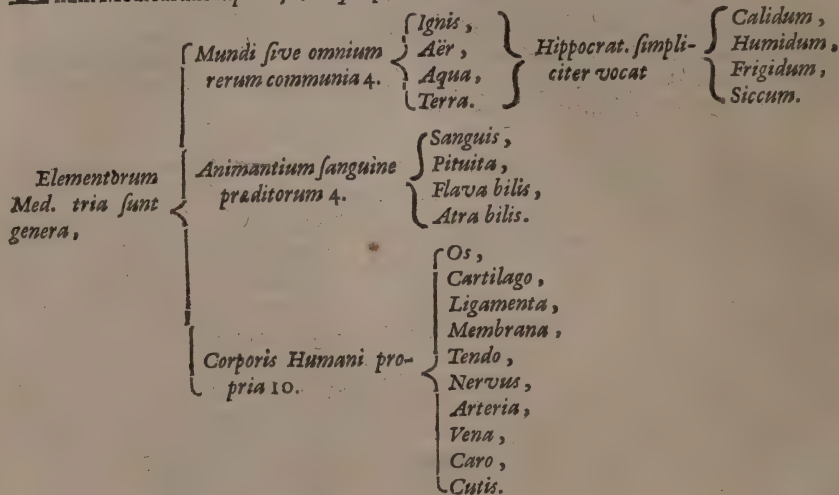 Elementorum
Med. tria sunt
genera,
Mundi sive omnium
rerum communia 4.
Ignis,
Aër,
Aqua,
Terra.
Hippocrat. simpli-
citer vocat
Calidum,
Humidum,
Frigidum,
Siccum.
Animantium sanguine
præditorum 4.
Sanguis,
Pituita,
Flava bilis,
Atra bilis.
Corporis Humani pro-
pria 10.
Os,
Cartilago,
Ligamenta,
Membrana,
Tendo,
Nervus,
Arteria,
Vena,
Caro,
Cutis.